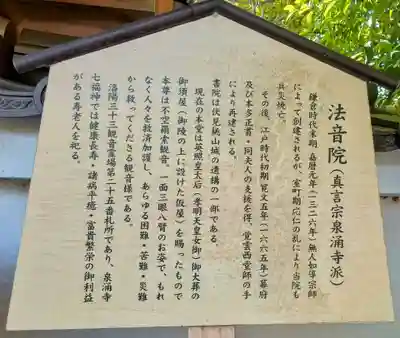 法音院（真言宗泉涌寺派）
鎌倉時代末期、嘉暦元年（一三二六年）無人如導宗師
によって創建されるが、室町期応仁の乱により当院も
兵火焼亡。
その後、江戸時代初期寛文五年（一六六五年）幕府
及び本多正貫・同夫人の支援を得、覚雲西堂師の手
により再建される。
書院は伏見桃山城の遺構の一部である。
現在の本堂は英照皇太后（孝明天皇女御）御大葬の
御須屋（御陵の上に設けた仮屋）を賜ったもので
本尊は不空羂索観音、一面三眼八臂のお姿で、もれ
なく人々を救済加護し、あらゆる困難・苦難・災難
から救ってくださる観音様である。
洛陽三十三観音霊場第二十五番札所であり、泉涌寺
七福神では健康長寿・諸病平癒・富貴繁栄の御利益
がある寿老人を祀る。